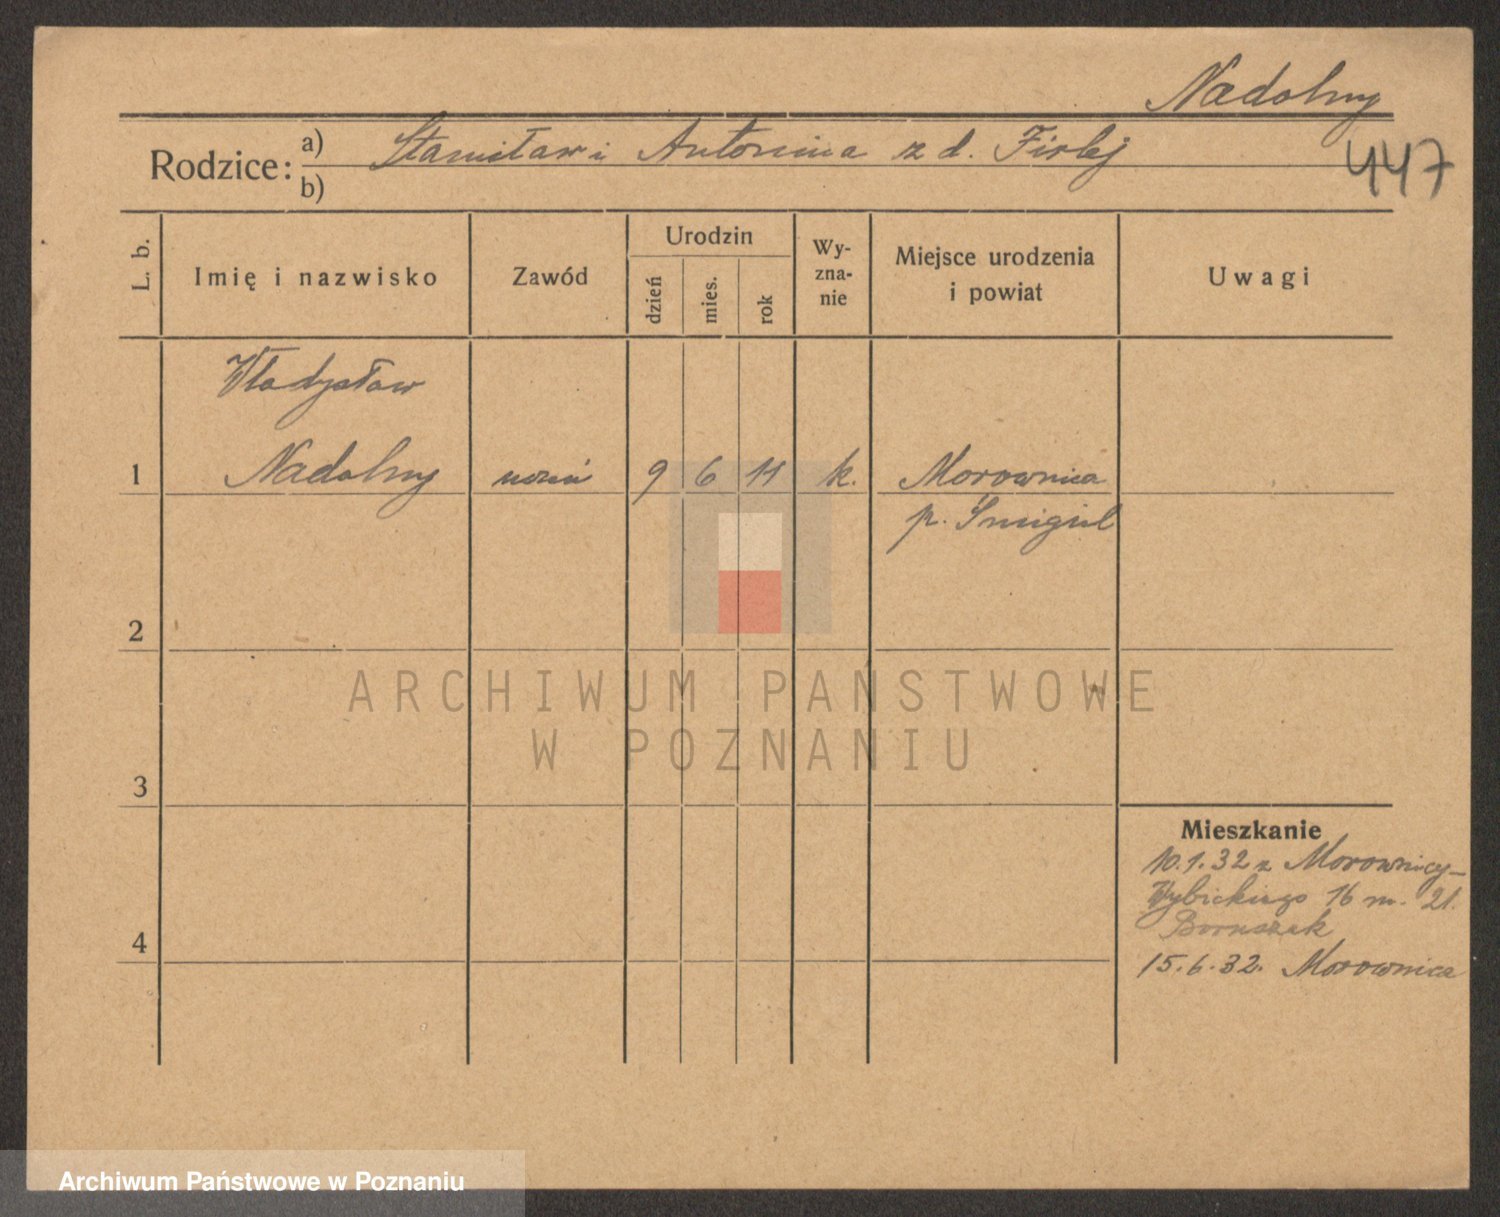 Nadolny
Rodzice: a) Stanisław i Antonina z d. Firlej
b)
447
L. b.
Imię i nazwisko
Zawód
Urodzin
dzień
mies.
rok
Wy-
zna-
nie
Miejsce urodzenia
i powiat
Uwagi
Władysław
1 Nadolny uczeń 9 6 11 k. Morownica
p. Śmigiel
2
3
4
Mieszkanie
10.1.32 z Morownicy-
Wybickiego 16 m. 21.
Boruszak
15.6.32. Morownica
ARCHIWUM PAŃSTWOWE
W POZNANIU
Archiwum Państwowe w Poznaniu